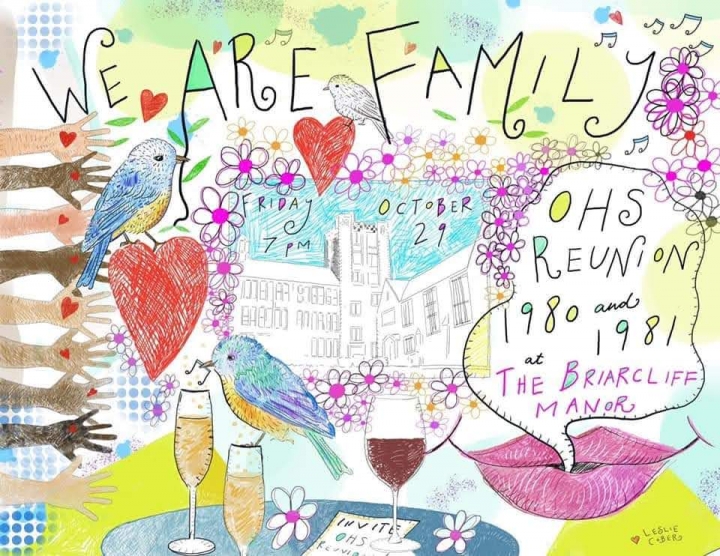 WE ARE FAMILY
FRIDAY
7 PM
OCTOBER
29
OHS
REUNION
1980 and
1981
at
THE BRIARCLIFF
MANOR
INVITE
OHS
LESLIE